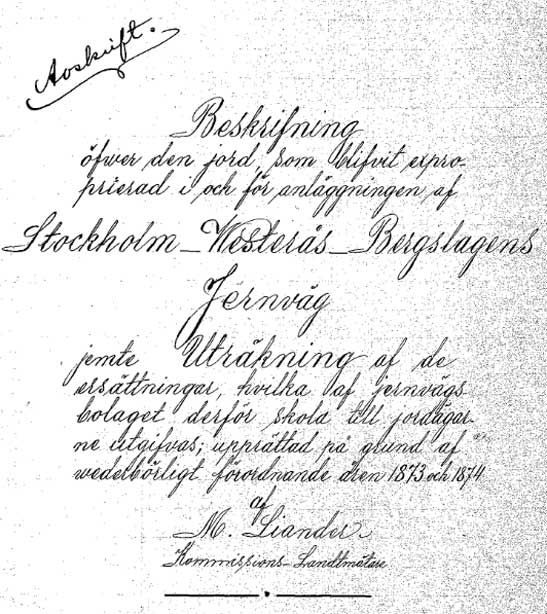 Avskrift.
Beskrifning
öfwer den jord, som blifvit expro-
prierad i och för anläggningen af
Stockholm-Westerås-Bergslagens
Jernväg
jemte Uträkning af de
ersättningar, hvilka af jernvägs
bolaget derför skola till jordägar-
ne utgifvas; upprättad på grund af
wederbörligt förordnande åren 1873 och 1874
af
M. Liander
Kommissions-Landtmätare